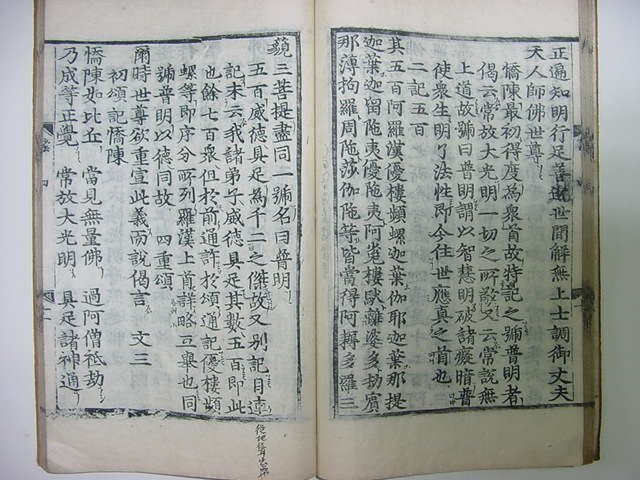 正遍知明行足善逝世間解無上士調御丈夫
天人師佛世尊
憍陳最初得度為眾首故特記之號普明者
偈云常放大光明一切之所敬又云常說無
上道故號曰普明謂以智慧明破諸癡暗普
使眾生明了法性即今住世應真之首也
二記五百
其五百阿羅漢優樓頻螺迦葉伽耶迦葉那提
迦葉迦留陁夷優陁夷阿㝹樓馱離婆多劫賓
那薄拘羅周陁莎伽陁等皆當得阿耨多羅三
藐三菩提盡同一號名曰普明
五百威德具足為千二之傑故又別記目連
記末云我諸弟子威德具足其數五百即此
也餘七百眾但於前通許於頌通記優樓頻
螺等即序分所列羅漢上首詳略互舉也同
號普明以德同故 四重頌
爾時世尊欲重宣此義而說偈言 文三
初頌記憍陳
憍陳如比丘 當見無量佛 過阿僧祇劫
乃成等正覺 常放大光明 具足諸神通